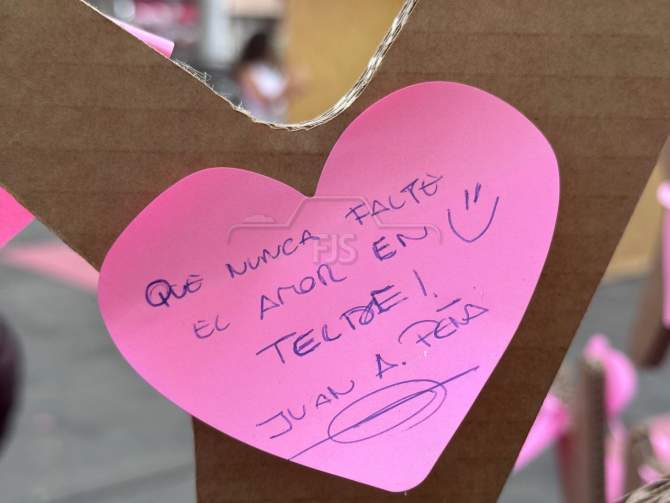 QUE NUNCA FALTE
EL AMOR EN
TELDE!
JUAN A. PEÑA
FJS